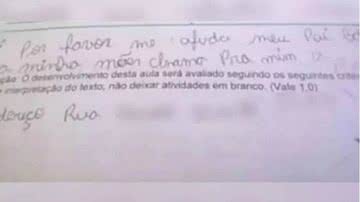 Por favor me ajuda meu Pai
minha mãen chama Pra mim
ção: O desenvolvimento desta aula será avaliado seguindo os seguintes crité
interpretação do texto, não deixar atividades em branco. (Vale 1,0)
dereço Rua